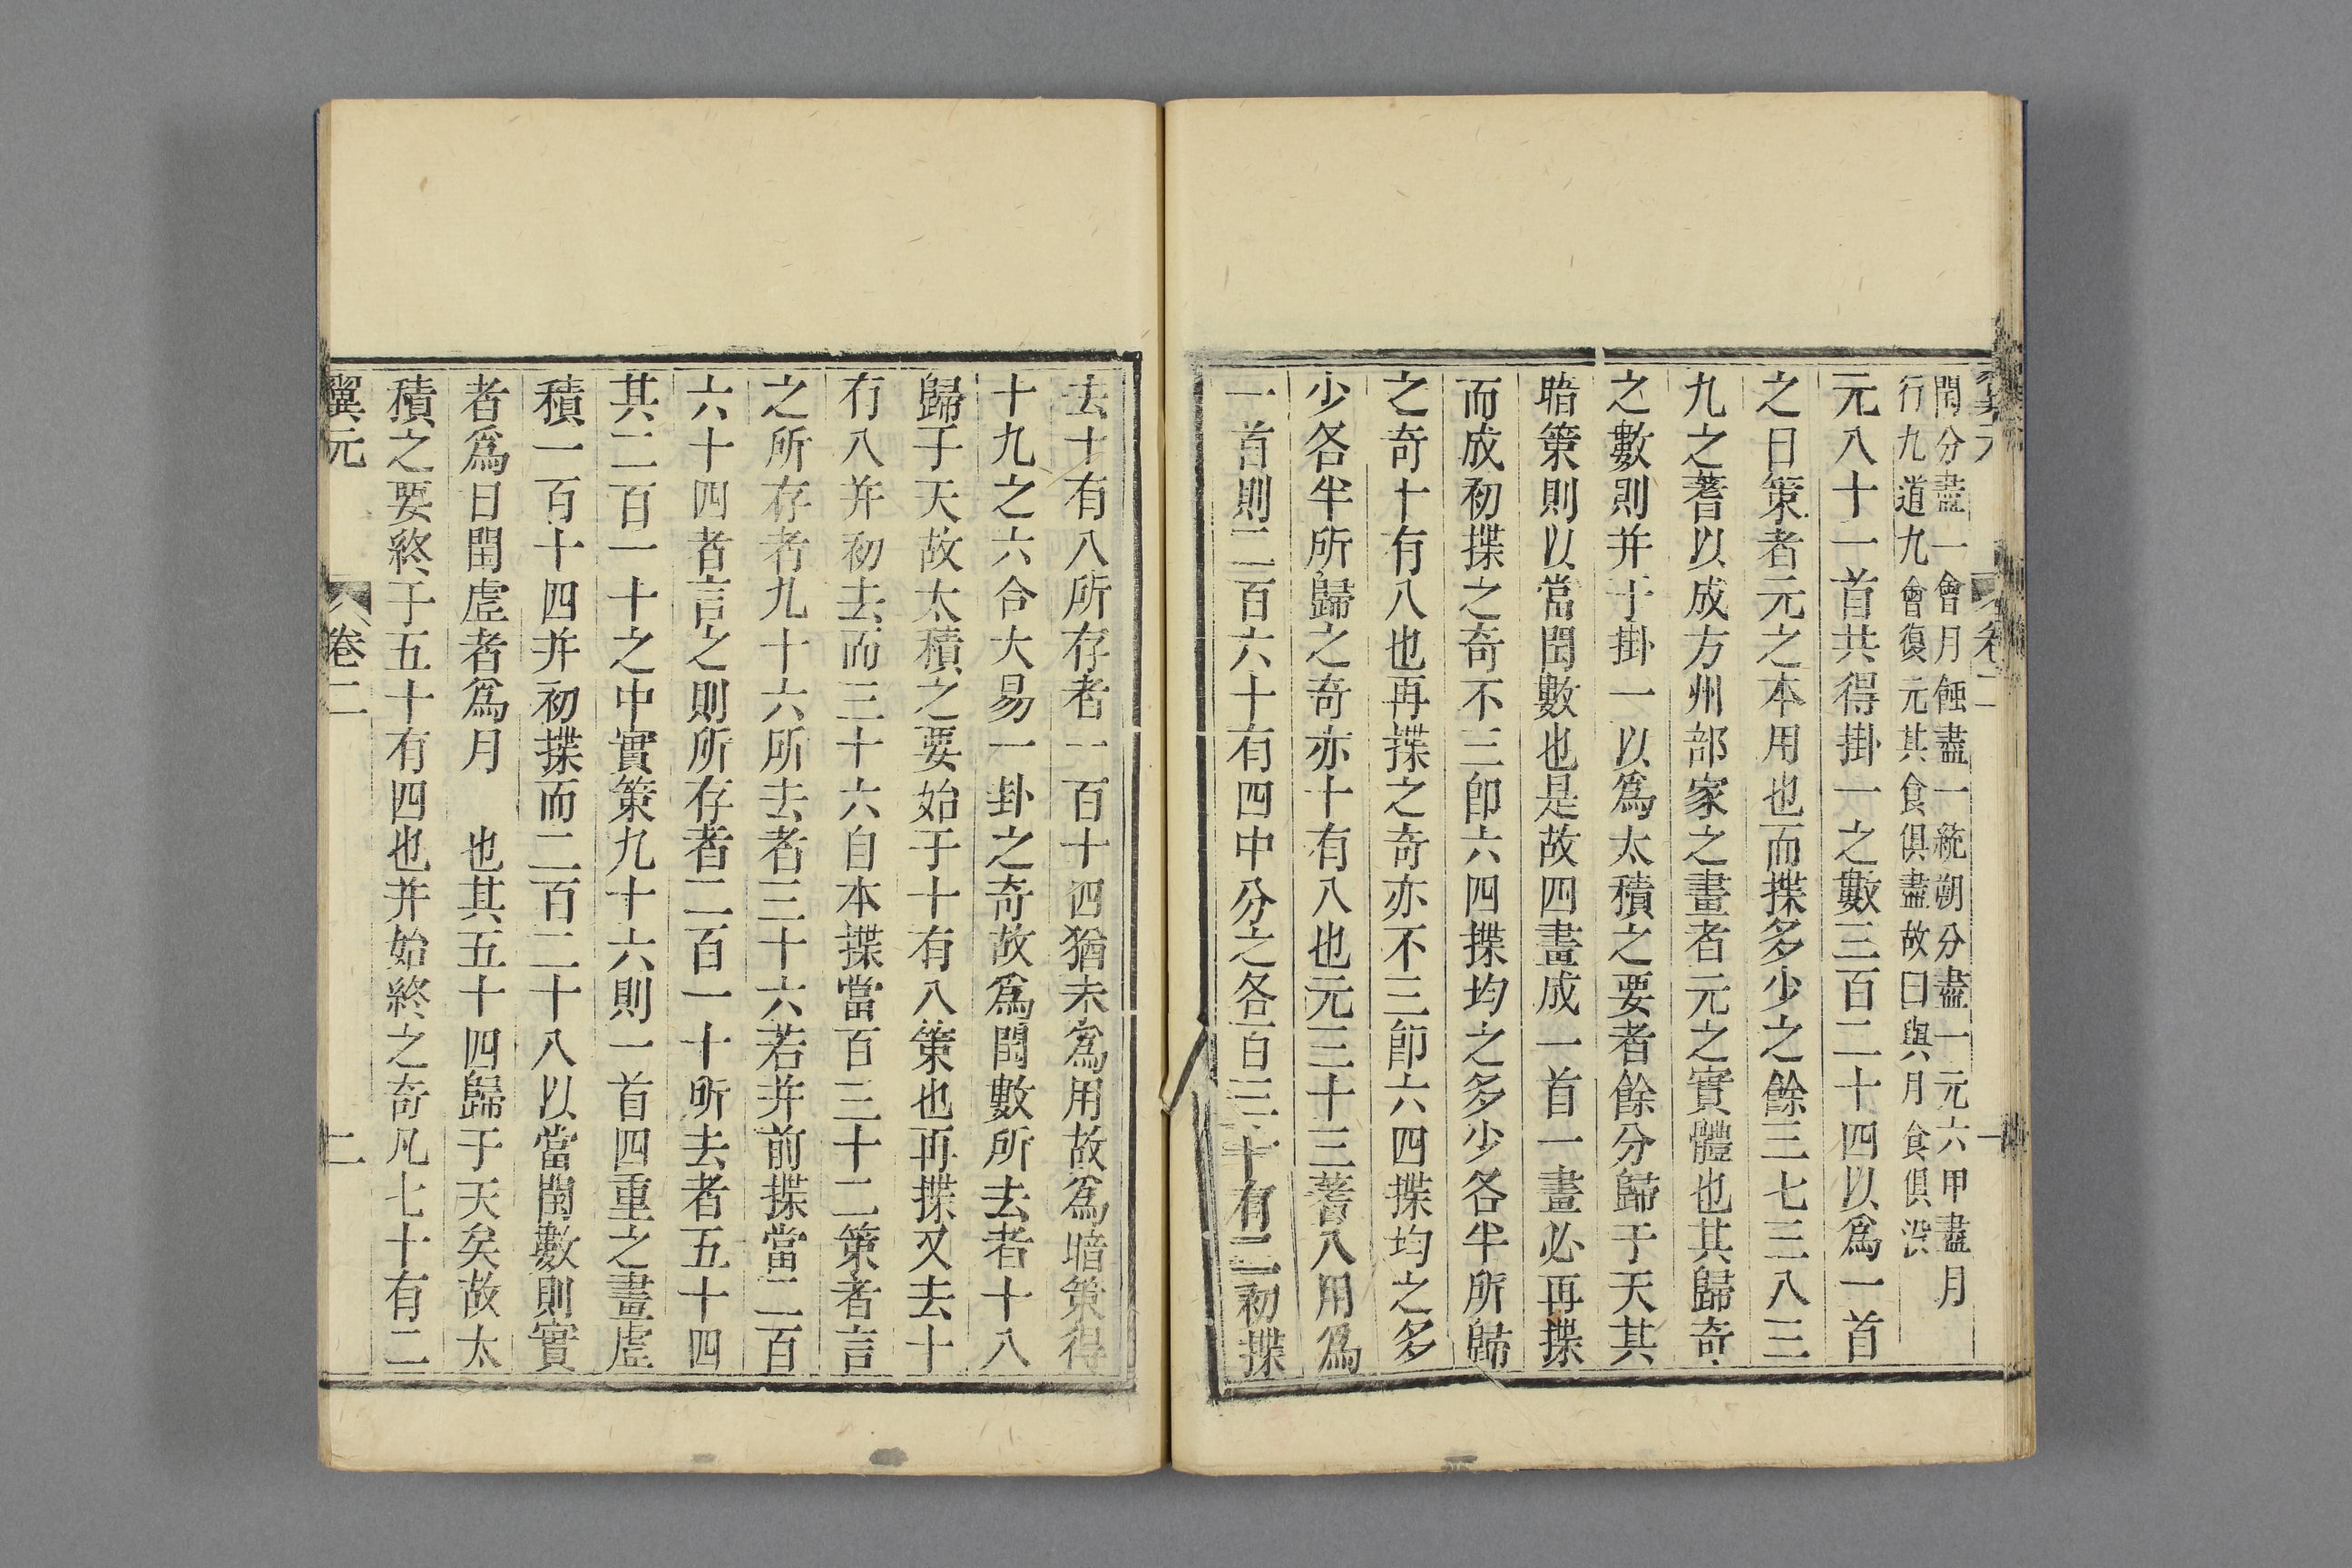 閏分盡一會月蝕盡一統朔分盡一元六甲盡月
行九道九會復元其食俱盡故曰與月食俱沒
元八十一首共得掛一之數三百二十四以爲一首
之日策者元之本用也而揲多少之餘三七三八三
九之蓍以成方州部家之畫者元之實體也其歸奇
之數則并于掛一以爲太積之要者餘分歸于天其
暗策則以當閏數也是故四畫成一首一畫必再揲
而成初揲之奇不三卽六四揲均之多少各半所歸
之奇十有八也再揲之奇亦不三卽六四揲均之多
少各半所歸之奇亦十有八也元三十三蓍八用爲
一首則二百六十有四中分之各百三十有二初揲
去十有八所存者一百十四猶未爲用故爲暗策得
十九之六合大易一卦之奇故爲閏數所去者十八
歸于天故太積之要始于十有八策也再揲又去十
有八并初去而三十六自本揲當百三十二策者言
之所存者九十六所去者三十六若并前揲當二百
六十四者言之則所存者二百一十所去者五十四
其二百一十之中實策九十六則一首四重之畫虛
積一百十四并初揲而二百二十八以當閏數則實
者爲日閏虛者爲月　也其五十四歸于天矣故太
積之要終于五十有四也并始終之奇凡七十有二
翼元　卷二　二